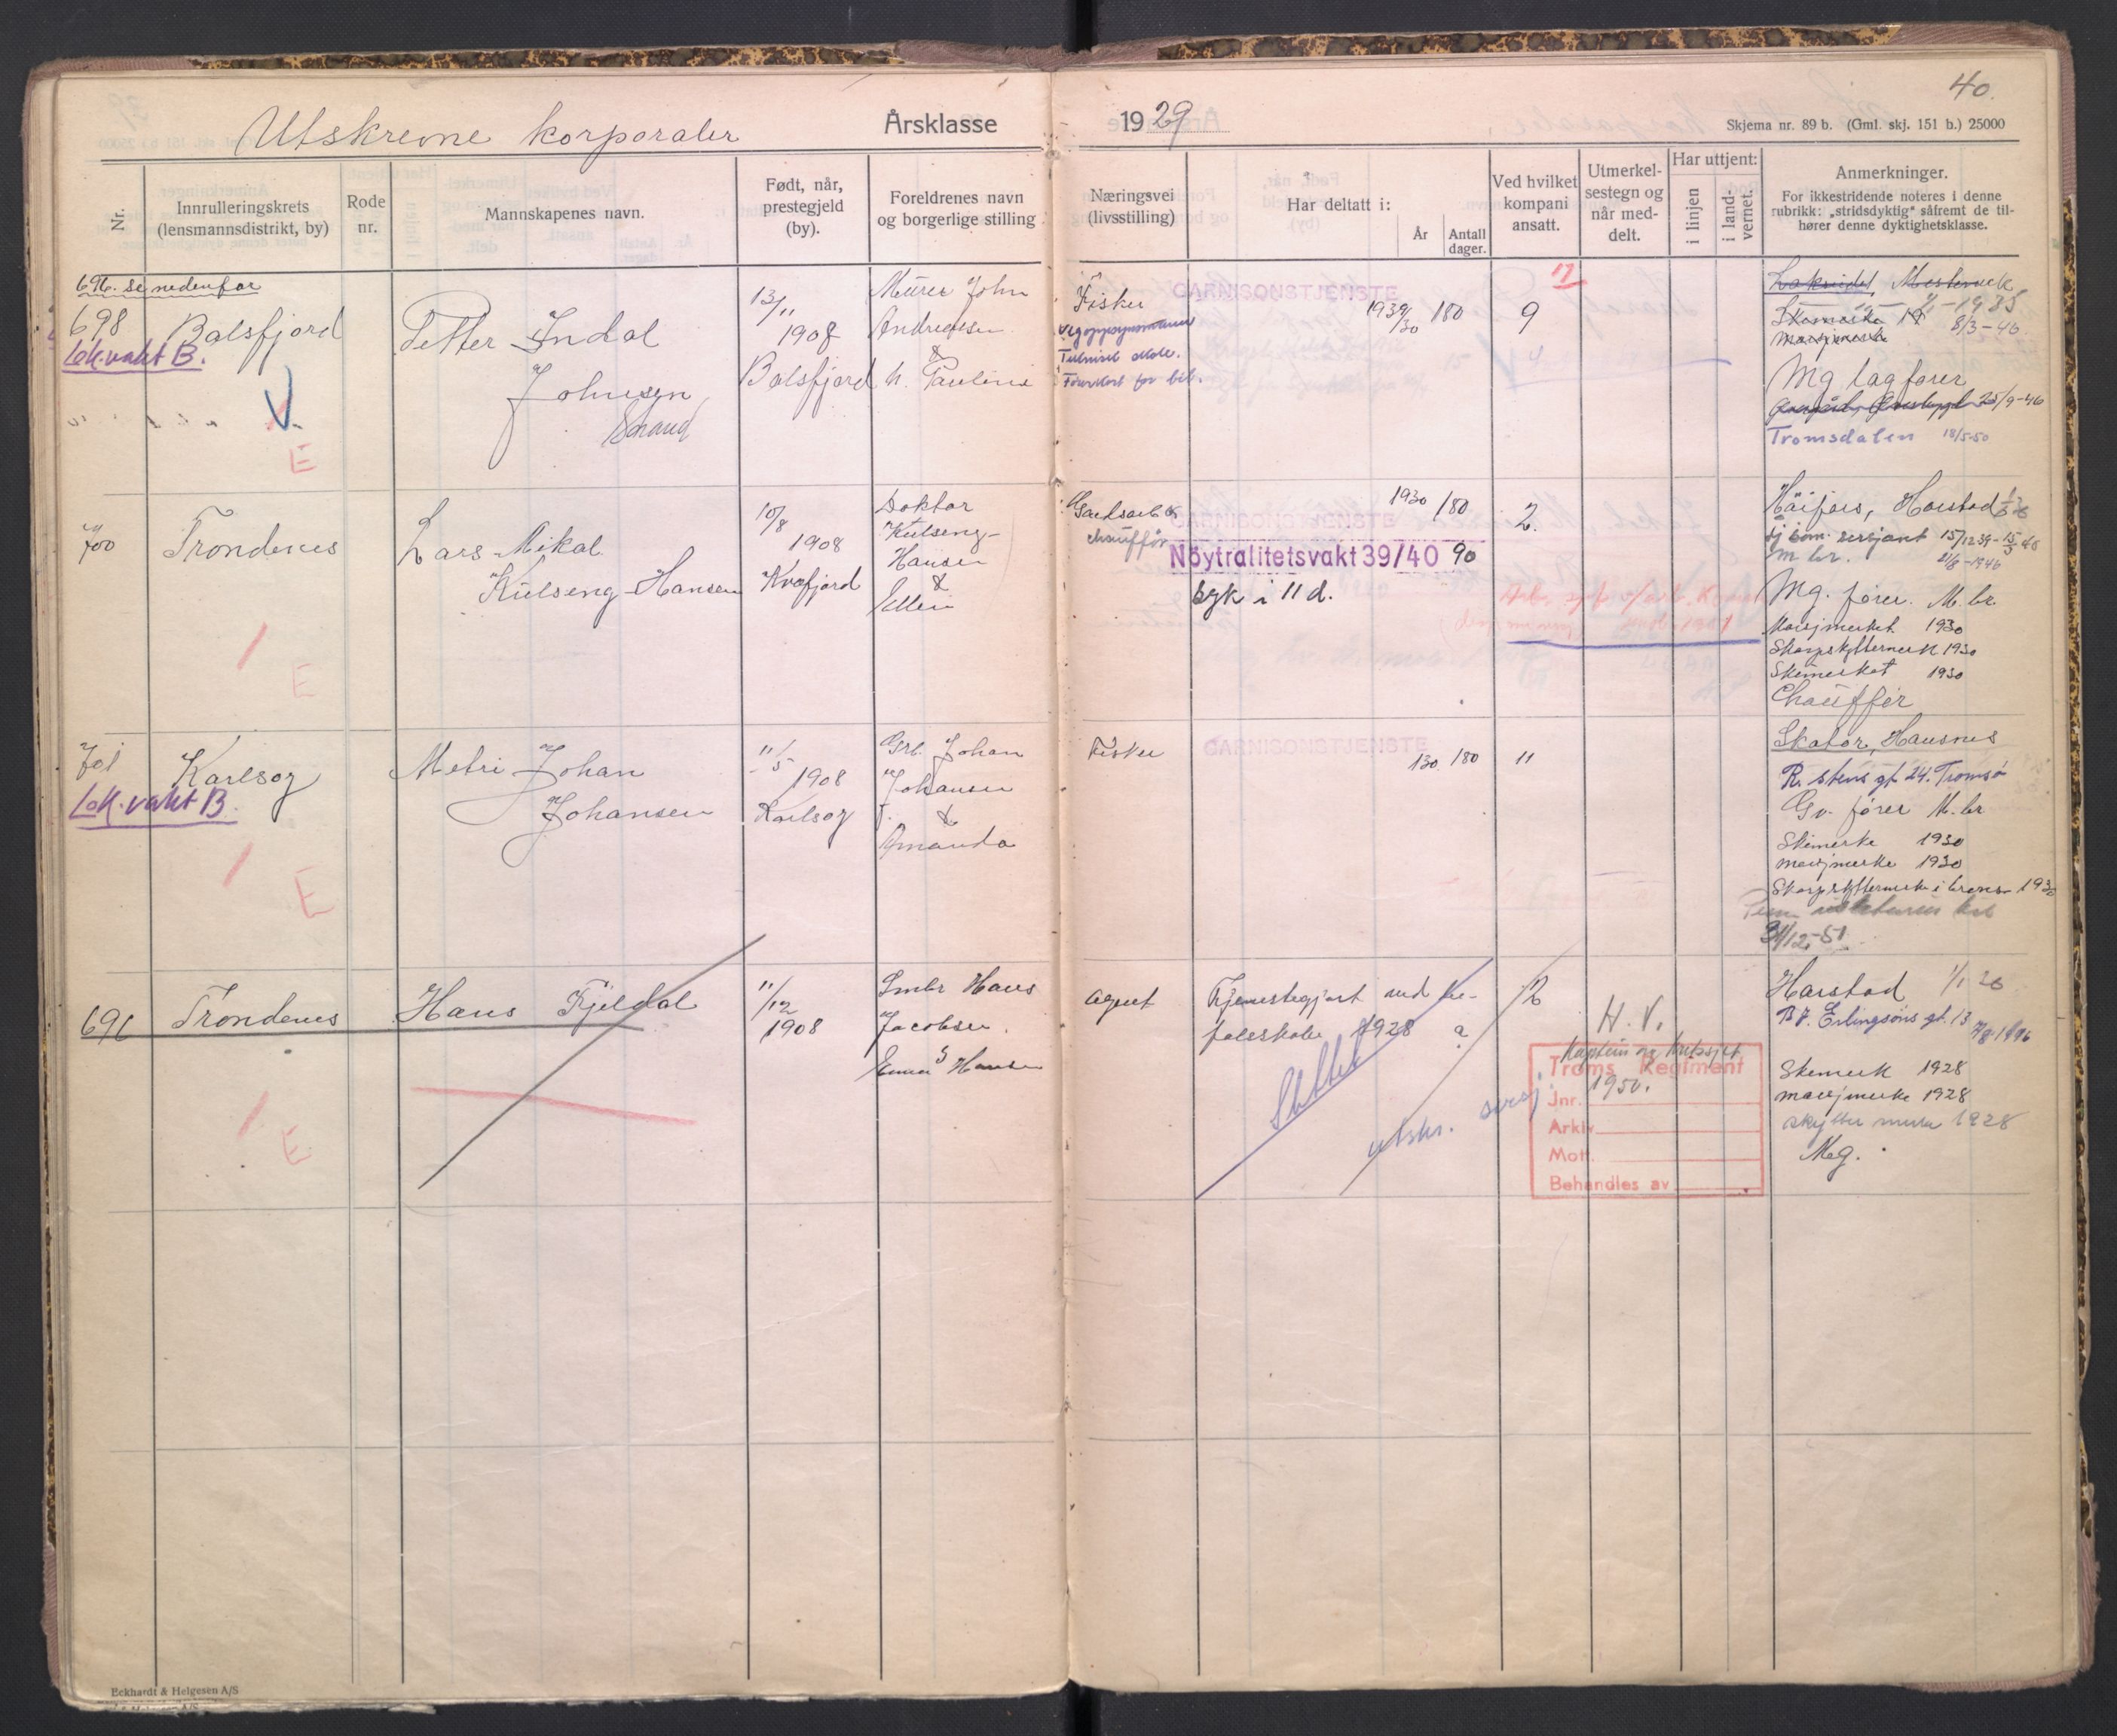 40.
Utskrevne korporaler Årsklasse 1929
Skjema nr. 89 b. (Gml. skj. 151 b.) 25000
Nr.
Innrulleringskrets (lensmannsdistrikt, by)
Rode nr.
Mannskapenes navn.
Født, når, prestegjeld (by).
Foreldrenes navn og borgerlige stilling
Næringsvei (livsstilling)
Har deltatt i:
År
Antall dager.
Ved hvilket kompani ansatt.
Utmerkel-sestegn og når med-delt.
Har uttjent:
i linjen
i land-vernet.
Anmerkninger.
For ikkestridende noteres i denne rubrikk: „stridsdyktig" såfremt de til-hører denne dyktighetsklasse.
696. se nedenfor
698
Balsfjord
Lok.vakt B.
V
E
Petter Indal
Johnsen
Strand
13/11
1908
Balsfjord
Murer John
Andreassen
&
h. Pauline
Fisker
GARNISONSTJENESTE
1939/30 180
9
17
Mestervik
1935
8/3-46
Mg lagfører
25/9-46
Tromsdalen 18/5-50
700
Trondenes
E
Lars Mikal
Kulseng-Hansen
10/8
1908
Kvæfjord
Doktor
Kulseng-
Hansen
&
Ellen
chauffør
GARNISONSTJENESTE
1930 180
Nöytralitetsvakt 39/40 90
syk i 11 d.
2.
Harstad
sersjant 15/12 39-
m br.
Mg. fører. M. br.
Marsjmerket 1930
Skarpskyttermerk 1930
Skimerket 1930
Chauffør
701
Karlsøy
Lok.vakt B.
E
Metri Johan
Johansen
11/5
1908
Karlsøy
Grb. Johan
Johansen
&
Amanda
Fisker
GARNISONSTJENESTE
130 180
11
Skator, Hansnes
R. stens gt 24. Tromsø
Gv. fører M. br
Skimerke 1930
marsjmerke 1930
Skarpskyttermerke i bronse 1930
31/12-51
696
Trondenes
E
Hans Fjeldal
11/12
1908
Smbr Hans
Jacobsen
Emma Hansen
agent
Tjenestegjort ved be-
falsskole 1928
Slettet
utskr. sersj
2
H. V.
1950.
Troms Regiment
Jnr.
Arkiv
Mott.
Behandles av
Harstad
Erlingsøns gt. 13
Skimerk 1928
marsjmerke 1928
skytter merke 1928
Mg.
Eckhardt & Helgesen A/S